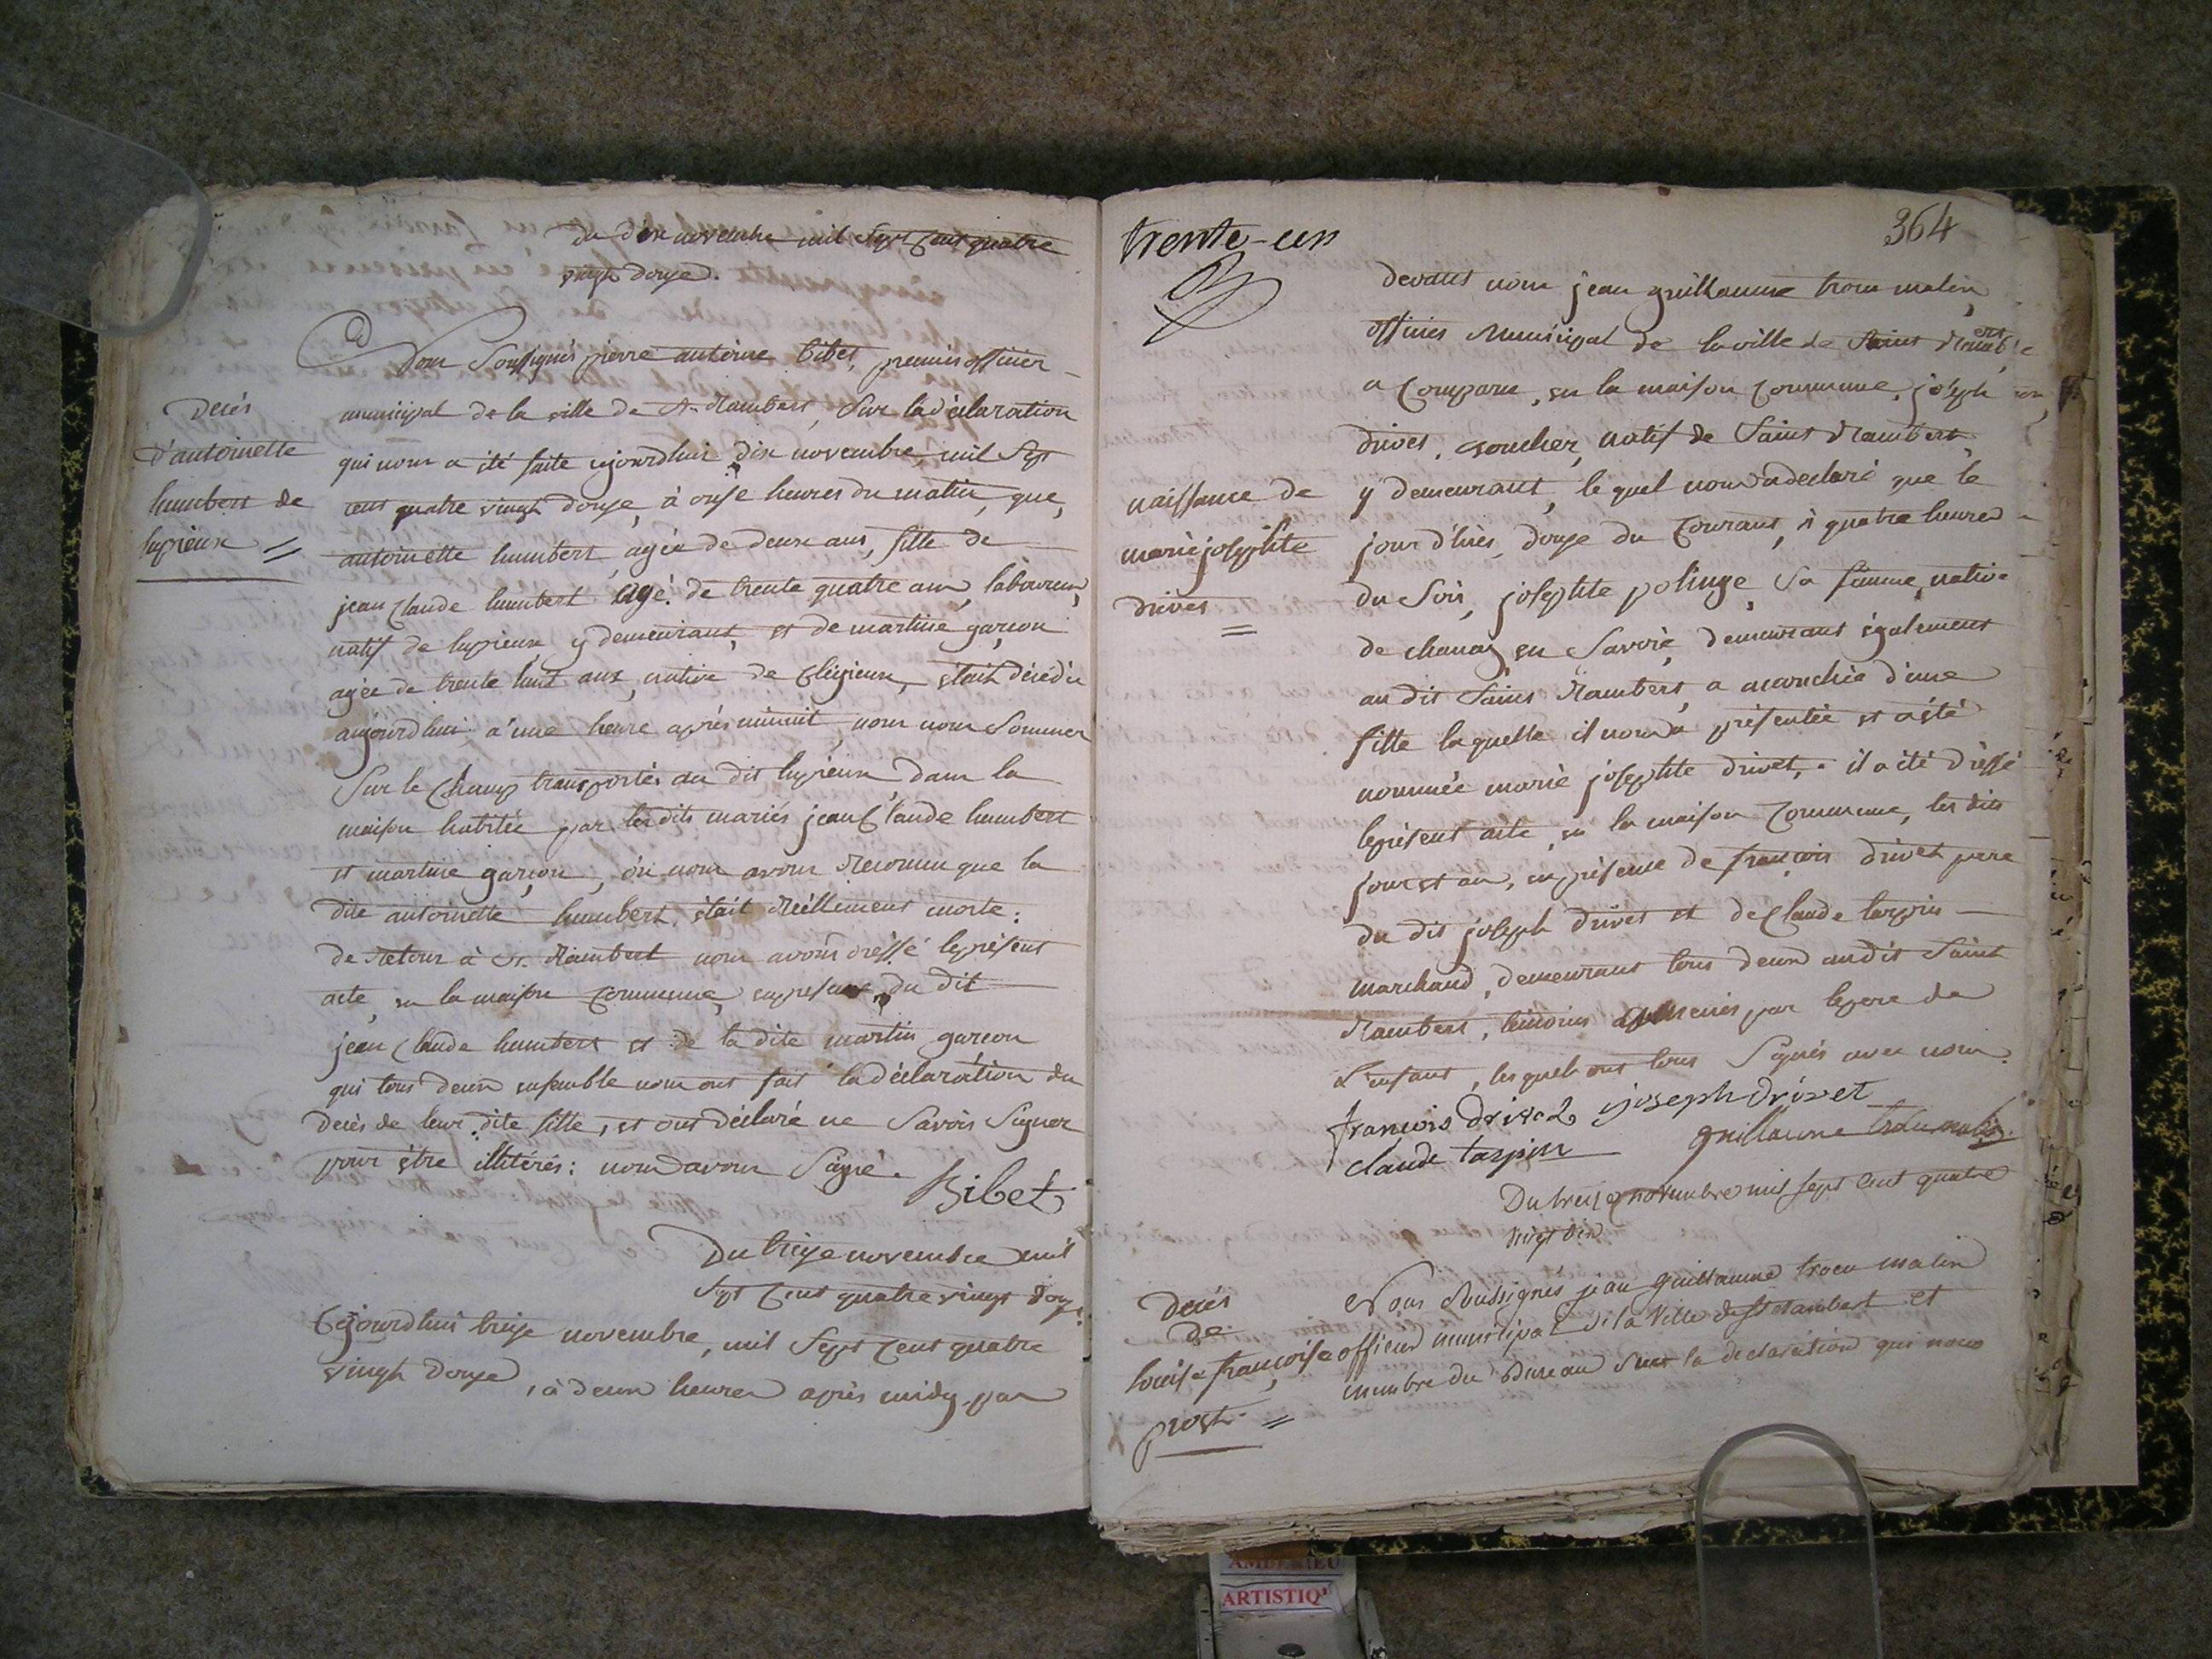 du dix novembre mil sept cent quatre
vingt douze.
Nous Soussignés pierre antoine bibet, premier officier
municipal de la ville de St. Rambert, Sur la déclaration
qui nous a été faite cejourdhui dix novembre, mil Sept
cent quatre vingt douze, à onze heures du matin, que,
antoinette humbert, agée de deux ans, fille de
jean Claude humbert agé de trente quatre ans, laboureur,
natif de lupieux y demeurant, et de martine garcon
agée de trente huit ans, native de Cleyzieux, était décédée
aujourdhui à une heure après minuit, nous nous Sommes
Sur le Champ transportés au dit lupieux, dans la
maison habitée par les dits mariés jean Claude humbert
et martine garçon, où nous avons Reconnu que la
dite antoinette humbert, était Réellement morte:
de Retour à St. Rambert nous avons dressé le présent
acte, en la maison Commune, en presence du dit
jean Claude humbert et de la dite martin garcon
qui tous deux ensemble nous ont fait la déclaration du
decès de leur dite fille, et ont déclaré ne Savoir Signer
pour être illitérés: nous avons Signé.
Bibet
Décès
d'antoinette
humbert de
lupieux =
Du treize novembre mil
Sept Cent quatre vingt douze.
Cejourdhui treize novembre, mil Sept Cent quatre
vingt douze, à deux heures après midy, par
trente-un
364
devant nous jean guillaume trocu matin,
officier Municipal de la ville de Saint Rambert
a Comparu, en la maison Commune, joseph
drivet, natif de Saint Rambert,
y demeurant, le quel nous a declaré que le
jour d'hier, douze du Courant, à quatre heures
du Soir, josephte polinge, Sa femme, native
de chanaz en Savoie, demeurant également
au dit Saint Rambert, a accouchée d'une
fille laquelle il nous a présentée et a été
nommée marie josephte drivet, il a été dressé
le présent acte, en la maison Commune, les dits
jour et an, en présence de françois drivet pere
du dit joseph drivet et de Claude tarpin
marchand, demeurant tous deux audit Saint
Rambert, témoins par le pere de
L'enfant, les quels ont tous Signés avec nous.
francois drivet joseph drivet
claude tarpin guillaume trocu matin
naissance de
marie josephte
drivet =
Du treize novembre mil sept cent quatre
vingt
Nous Soussignés jean guillaume trocu matin
officier municipal de la Ville de St Rambert et
membre du Bureau Sur la declaration qui nous
Décès
de
louise françoise
prost. =
AMBERIEU
ARTISTIQ'